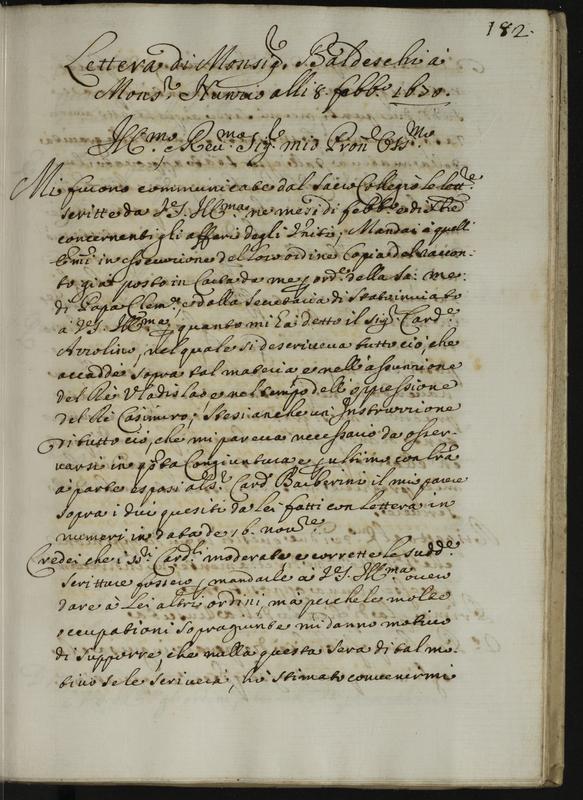 182.
Lettera di Monsig.r Baldeschi à
Mons.r Nunzio alli 8. febb.o 1670.
Ill.mo, e Reu.mo Sig.r mio Pron.e Oss.mo
Mi furono communicate dal Sacro Collegio le lett.e
scritte da V.S. Ill.ma ne mesi di febb.o e di
concernenti gli affari degli Vniti, Mandai à quell'
Em.mi in essecuzione del loro ordine Copia del raccon-
to già posto in Carta da me p ord.e della Sa: me:
di Papa Clem.e, e dalla Secretaria di Stato inuiato
a V.S. Ill.ma, p quanto mi hà detto il Sig.r Card.e
Azzolino, nel quale si descriueua tutto ciò, che
accadde sopra tal materia e nell'assunzione
del Rè Vladislao e nel tempo dell'oppressione
del Rè Casimiro; Stesi anche un Instruzzione
di tutto ciò, che mi pareua necessario da osser-
uarsi in q.sta Congiuntura e p ultimo con lr̃a
a parte esposi al S.r Card. Barberini il mio parere
sopra i due quesiti da lei fatti con lettera in
numeri in data de 16. nou.e
Credei che i SS.ri Card.li moderate e corrette le sudd.e
scritture fossero p mandarle à V.S. Ill.ma ouero
dare à Lei altri ordini, mà perche le molte
occupationi sopragiunte mi danno motiuo
di supporre, che nulla questa sera di tal mo-
tiuo se le scriuerà, hò stimato conuenirmi